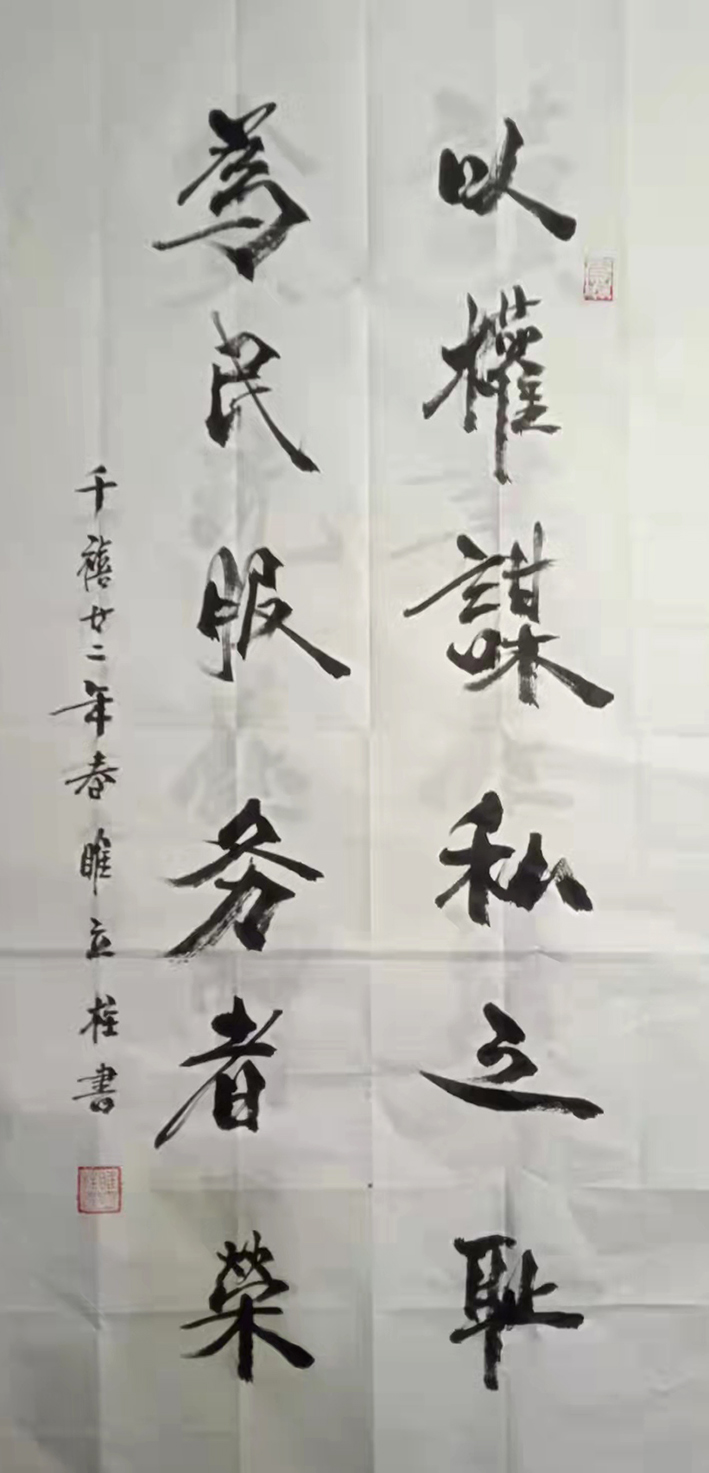 以權謀私之耻
為民服务者榮
千禧廿二年春睢立柱書